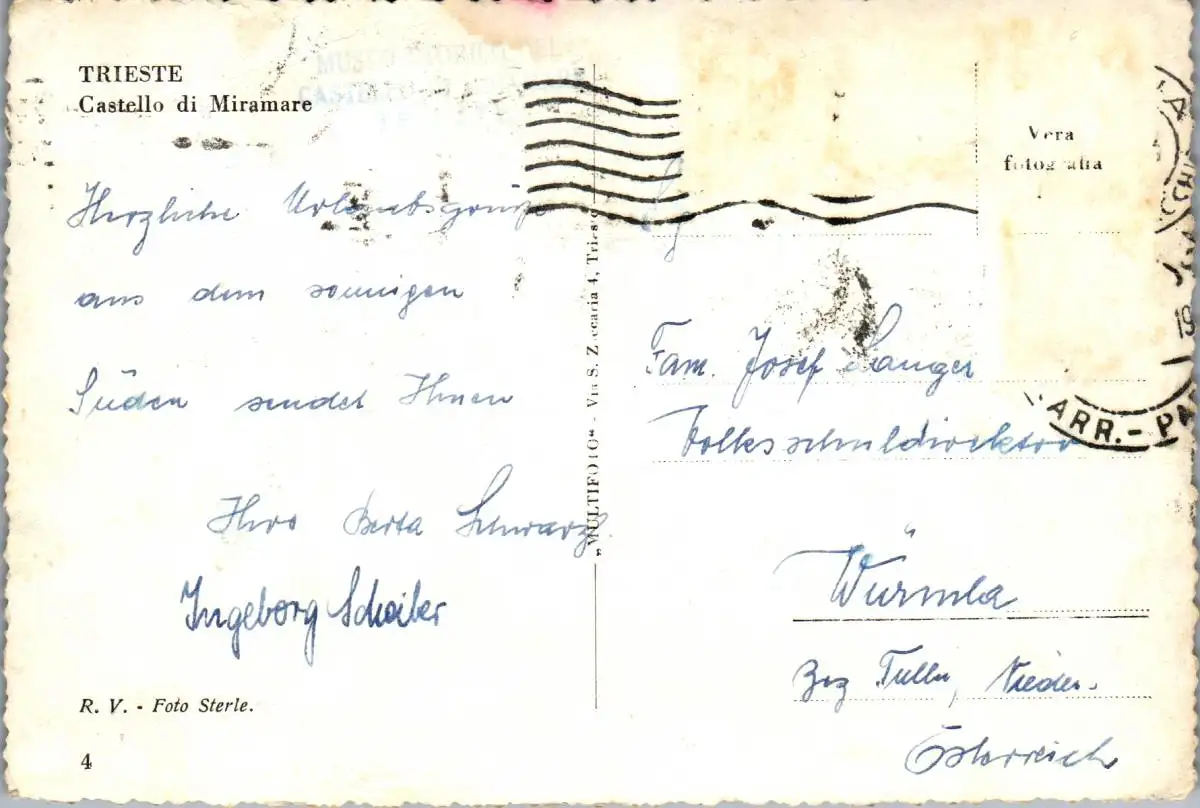 TRIESTE
Castello di Miramare
Vera
fotografia
Herzliche Urlaubsgrüße
aus dem sonnigen
Süden sendet Ihnen
Ihre Berta Schwarz
Ingeborg Schaiber
R. V. - Foto Sterle.
4
„MULTIFOTO“ - Via S. Zaccaria 4, Trieste
Fam. Josef Langer
Volksschuldirektor
Würmla
Bez Tulln, Nieder-
Österreich
ARR.-PA